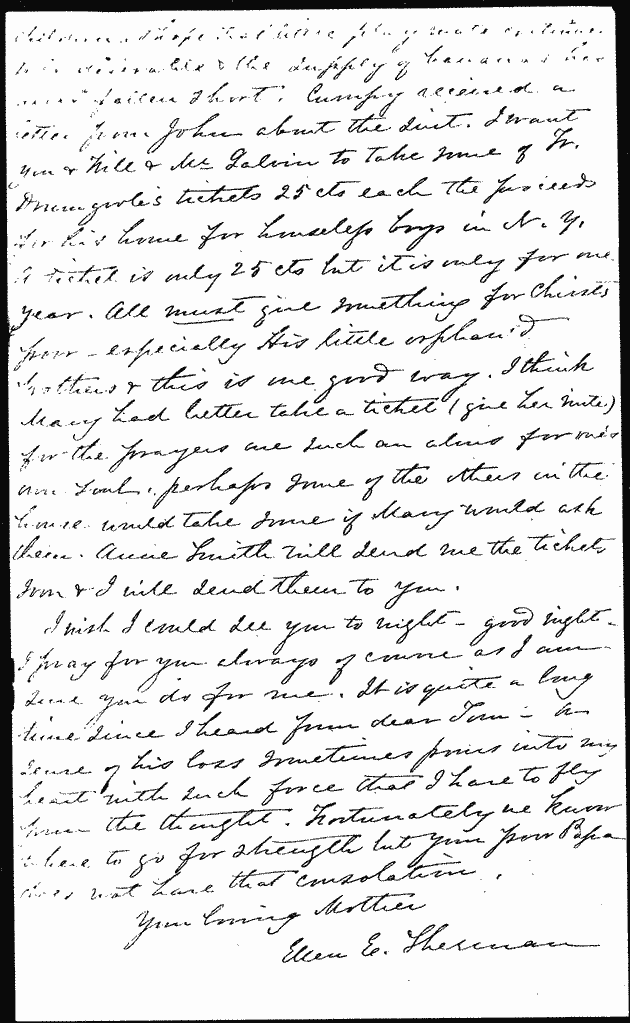 children. I hope that little playmate continues
to be desirable & the supply of bananas has
never fallen short. Cumpy received a
letter from John about the suit. I want
you & Will & Mr Galvin to take some of Fr.
Drumgoole's tickets 25 cts each the proceeds
for his home for houseless boys in N. Y.
A ticket is only 25 cts but it is only for one
year. All must give something for Christ's
poor - especially His little orphan'd
brothers & this is one good way. I think
Mary had better take a ticket (give her mite)
for the prayers are such an alms for one's
own soul. perhaps some of the others in the
house would take some if Mary would ask
them. Annie Smith will send me the tickets
soon & I will send them to you.
I wish I could see you to night - good night -
I pray for you always of course as I am
sure you do for me. It is quite a long
time since I heard from dear Tom - a
sense of his loss sometimes pours into my
heart with such force that I have to fly
from the thought. Fortunately we know
where to go for strength but your poor Papa
does not have that consolation.
Your loving Mother
Ellen E. Sherman